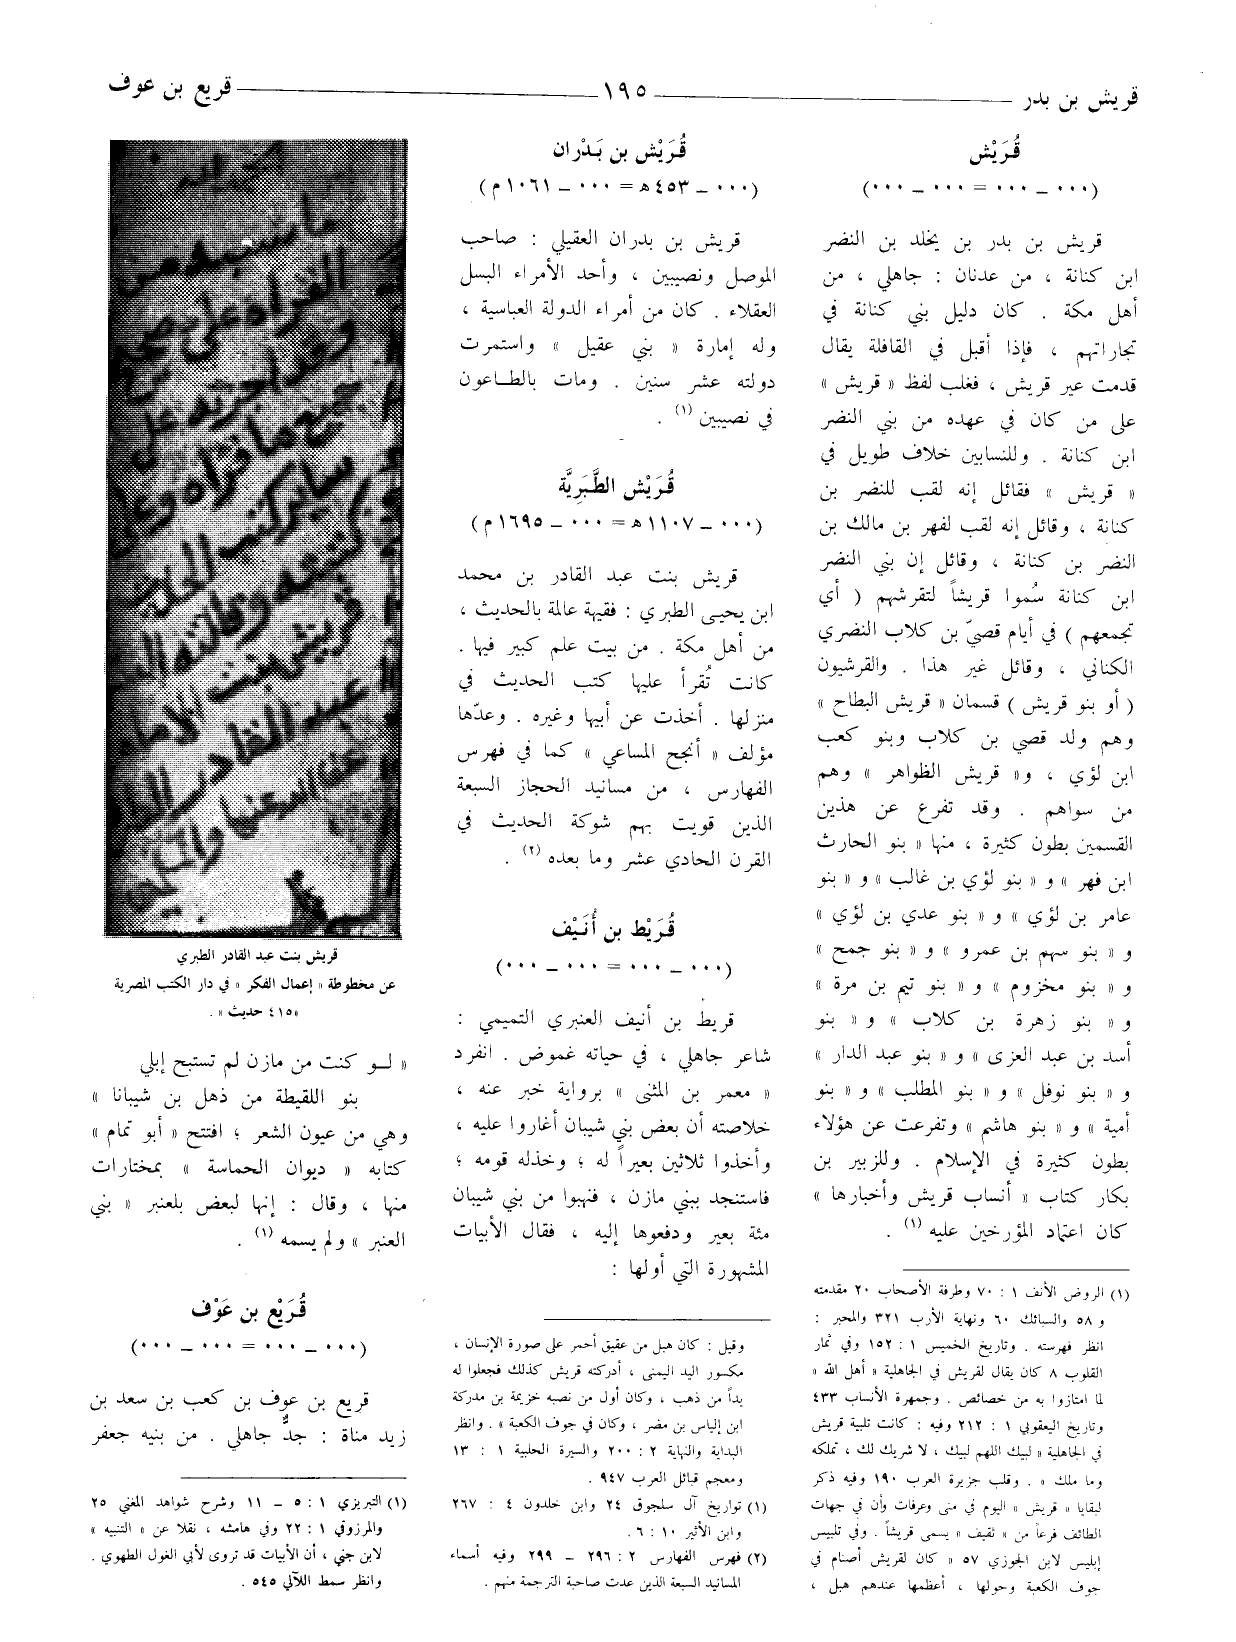 قريش بن بدر
١٩٥
قريع بن عوف
قُرَيْش
(٠٠٠ ـ ٠٠٠ = ٠٠٠ ـ ٠٠٠)
قريش بن بدر بن يخلد بن النضر
ابن كنانة ، من عدنان : جاهلي ، من
أهل مكة . كان دليل بني كنانة في
تجاراتهم ، فإذا أقبل في القافلة يقال
قدمت عير قريش ، فغلب لفظ « قريش »
على من كان في عهده من بني النضر
ابن كنانة . وللنسابين خلاف طويل في
« قريش » فقائل إنه لقب للنضر بن
كنانة ، وقائل إنه لقب لفهر بن مالك بن
النضر بن كنانة ، وقائل إن بني النضر
ابن كنانة سُموا قريشاً لتقرشهم ( أي
تجمعهم ) في أيام قصيّ بن كلاب النضري
الكناني ، وقائل غير هذا . والقرشيون
( أو بنو قريش ) قسمان « قريش البطاح »
وهم ولد قصي بن كلاب وبنو كعب
ابن لؤي ، و« قريش الظواهر » وهم
من سواهم . وقد تفرع عن هذين
القسمين بطون كثيرة ، منها « بنو الحارث
ابن فهر » و « بنو لؤي بن غالب » و « بنو
عامر بن لؤي » و « بنو عدي بن لؤي »
و « بنو سهم بن عمرو » و « بنو جمح »
و « بنو مخزوم » و « بنو تيم بن مرة »
و « بنو زهرة بن كلاب » و « بنو
أسد بن عبد العزى » و « بنو عبد الدار »
و « بنو نوفل » و « بنو المطلب » و « بنو
أمية » و « بنو هاشم » وتفرعت عن هؤلاء
بطون كثيرة في الإسلام . وللزبير بن
بكار كتاب « أنساب قريش وأخبارها »
كان اعتماد المؤرخين عليه (١) .
(١) الروض الأنف ١ : ٧٠ وطرفة الأصحاب ٢٠ مقدمته
و ٥٨ والسبائك ٦٠ ونهاية الأرب ٣٢١ والمحبر :
انظر فهرسته . وتاريخ الخميس ١ : ١٥٢ وفي ثمار
القلوب ٨ كان يقال لقريش في الجاهلية « أهل الله »
لما امتازوا به من خصائص . وجمهرة الأنساب ٤٣٣
وتاريخ اليعقوبي ١ : ٢١٢ وفيه : كانت تلبية قريش
في الجاهلية « لبيك اللهم لبيك ، لا شريك لك ، تملكه
وما ملك » . وقلب جزيرة العرب ١٩٠ وفيه ذكر
لبقايا « قريش » اليوم في منى وعرفات وأن في جهات
الطائف فرعاً من « ثقيف » يسمى قريشاً . وفي تلبيس
إبليس لابن الجوزي ٥٧ « كان لقريش أصنام في
جوف الكعبة وحولها ، أعظمها عندهم هبل ،
قُرَيْش بن بَدْران
(٠٠٠ ـ ٤٥٣ هـ = ٠٠٠ ـ ١٠٦١ م)
قريش بن بدران العقيلي : صاحب
الموصل ونصيبين ، وأحد الأمراء البسل
العقلاء . كان من أمراء الدولة العباسية ،
وله إمارة « بني عقيل » واستمرت
دولته عشر سنين . ومات بالطاعون
في نصيبين (١) .
قُرَيْش الطَّبَرِيَّة
(٠٠٠ ـ ١١٠٧ هـ = ٠٠٠ ـ ١٦٩٥ م)
قريش بنت عبد القادر بن محمد
ابن يحيى الطبري : فقيهة عالمة بالحديث ،
من أهل مكة . من بيت علم كبير فيها .
كانت تُقرأ عليها كتب الحديث في
منزلها . أخذت عن أبيها وغيره . وعدّها
مؤلف « أنجح المساعي » كما في فهرس
الفهارس ، من مسانيد الحجاز السبعة
الذين قويت بهم شوكة الحديث في
القرن الحادي عشر وما بعده (٢) .
قُرَيْط بن أُنَيْف
(٠٠٠ ـ ٠٠٠ = ٠٠٠ ـ ٠٠٠)
قريط بن أنيف العنبري التميمي :
شاعر جاهلي ، في حياته غموض . انفرد
« معمر بن المثنى » برواية خبر عنه ،
خلاصته أن بعض بني شيبان أغاروا عليه ،
وأخذوا ثلاثين بعيراً له ؛ وخذله قومه ؛
فاستنجد ببني مازن ، فنهبوا من بني شيبان
مئة بعير ودفعوها إليه ، فقال الأبيات
المشهورة التي أولها :
وقيل : كان هبل من عقيق أحمر على صورة الإنسان ،
مكسور اليد اليمنى ، أدركته قريش كذلك فجعلوا له
يداً من ذهب ، وكان أول من نصبه خزيمة بن مدركة
ابن إلياس بن مضر ، وكان في جوف الكعبة » . وانظر
البداية والنهاية ٢ : ٢٠٠ والسيرة الحلبية ١ : ١٣
ومعجم قبائل العرب ٩٤٧ .
(١) تواريخ آل سلجوق ٢٤ وابن خلدون ٤ : ٢٦٧
وابن الأثير ١٠ : ٦ .
(٢) فهرس الفهارس ٢ : ٢٩٦ ـ ٢٩٩ وفيه أسماء
المسانيد السبعة الذين عدت صاحبة الترجمة منهم .
ما ننسبه من
القراءه على
جميع ما
ساير كتب
قريش بنت الامام
عبد القادر
قريش بنت عبد القادر الطبري
عن مخطوطة « إعمال الفكر » في دار الكتب المصرية
« ٤١٥ حديث » .
« لو كنت من مازن لم تستبح إبلي
بنو اللقيطة من ذهل بن شيبانا »
وهي من عيون الشعر ؛ افتتح « أبو تمام »
كتابه « ديوان الحماسة » بمختارات
منها ، وقال : إنها لبعض بلعنبر « بني
العنبر » ولم يسمه (١) .
قُرَيْع بن عَوْف
(٠٠٠ ـ ٠٠٠ = ٠٠٠ ـ ٠٠٠)
قريع بن عوف بن كعب بن سعد بن
زيد مناة : جدٌّ جاهلي . من بنيه جعفر
(١) التبريزي ١ : ٥ ـ ١١ وشرح شواهد المغني ٢٥
والمرزوقي ١ : ٢٢ وفي هامشه ، نقلا عن « التنبيه »
لابن جني ، أن الأبيات قد تروى لأبي الغول الطهوي .
وانظر سمط اللآلي ٥٤٥ .